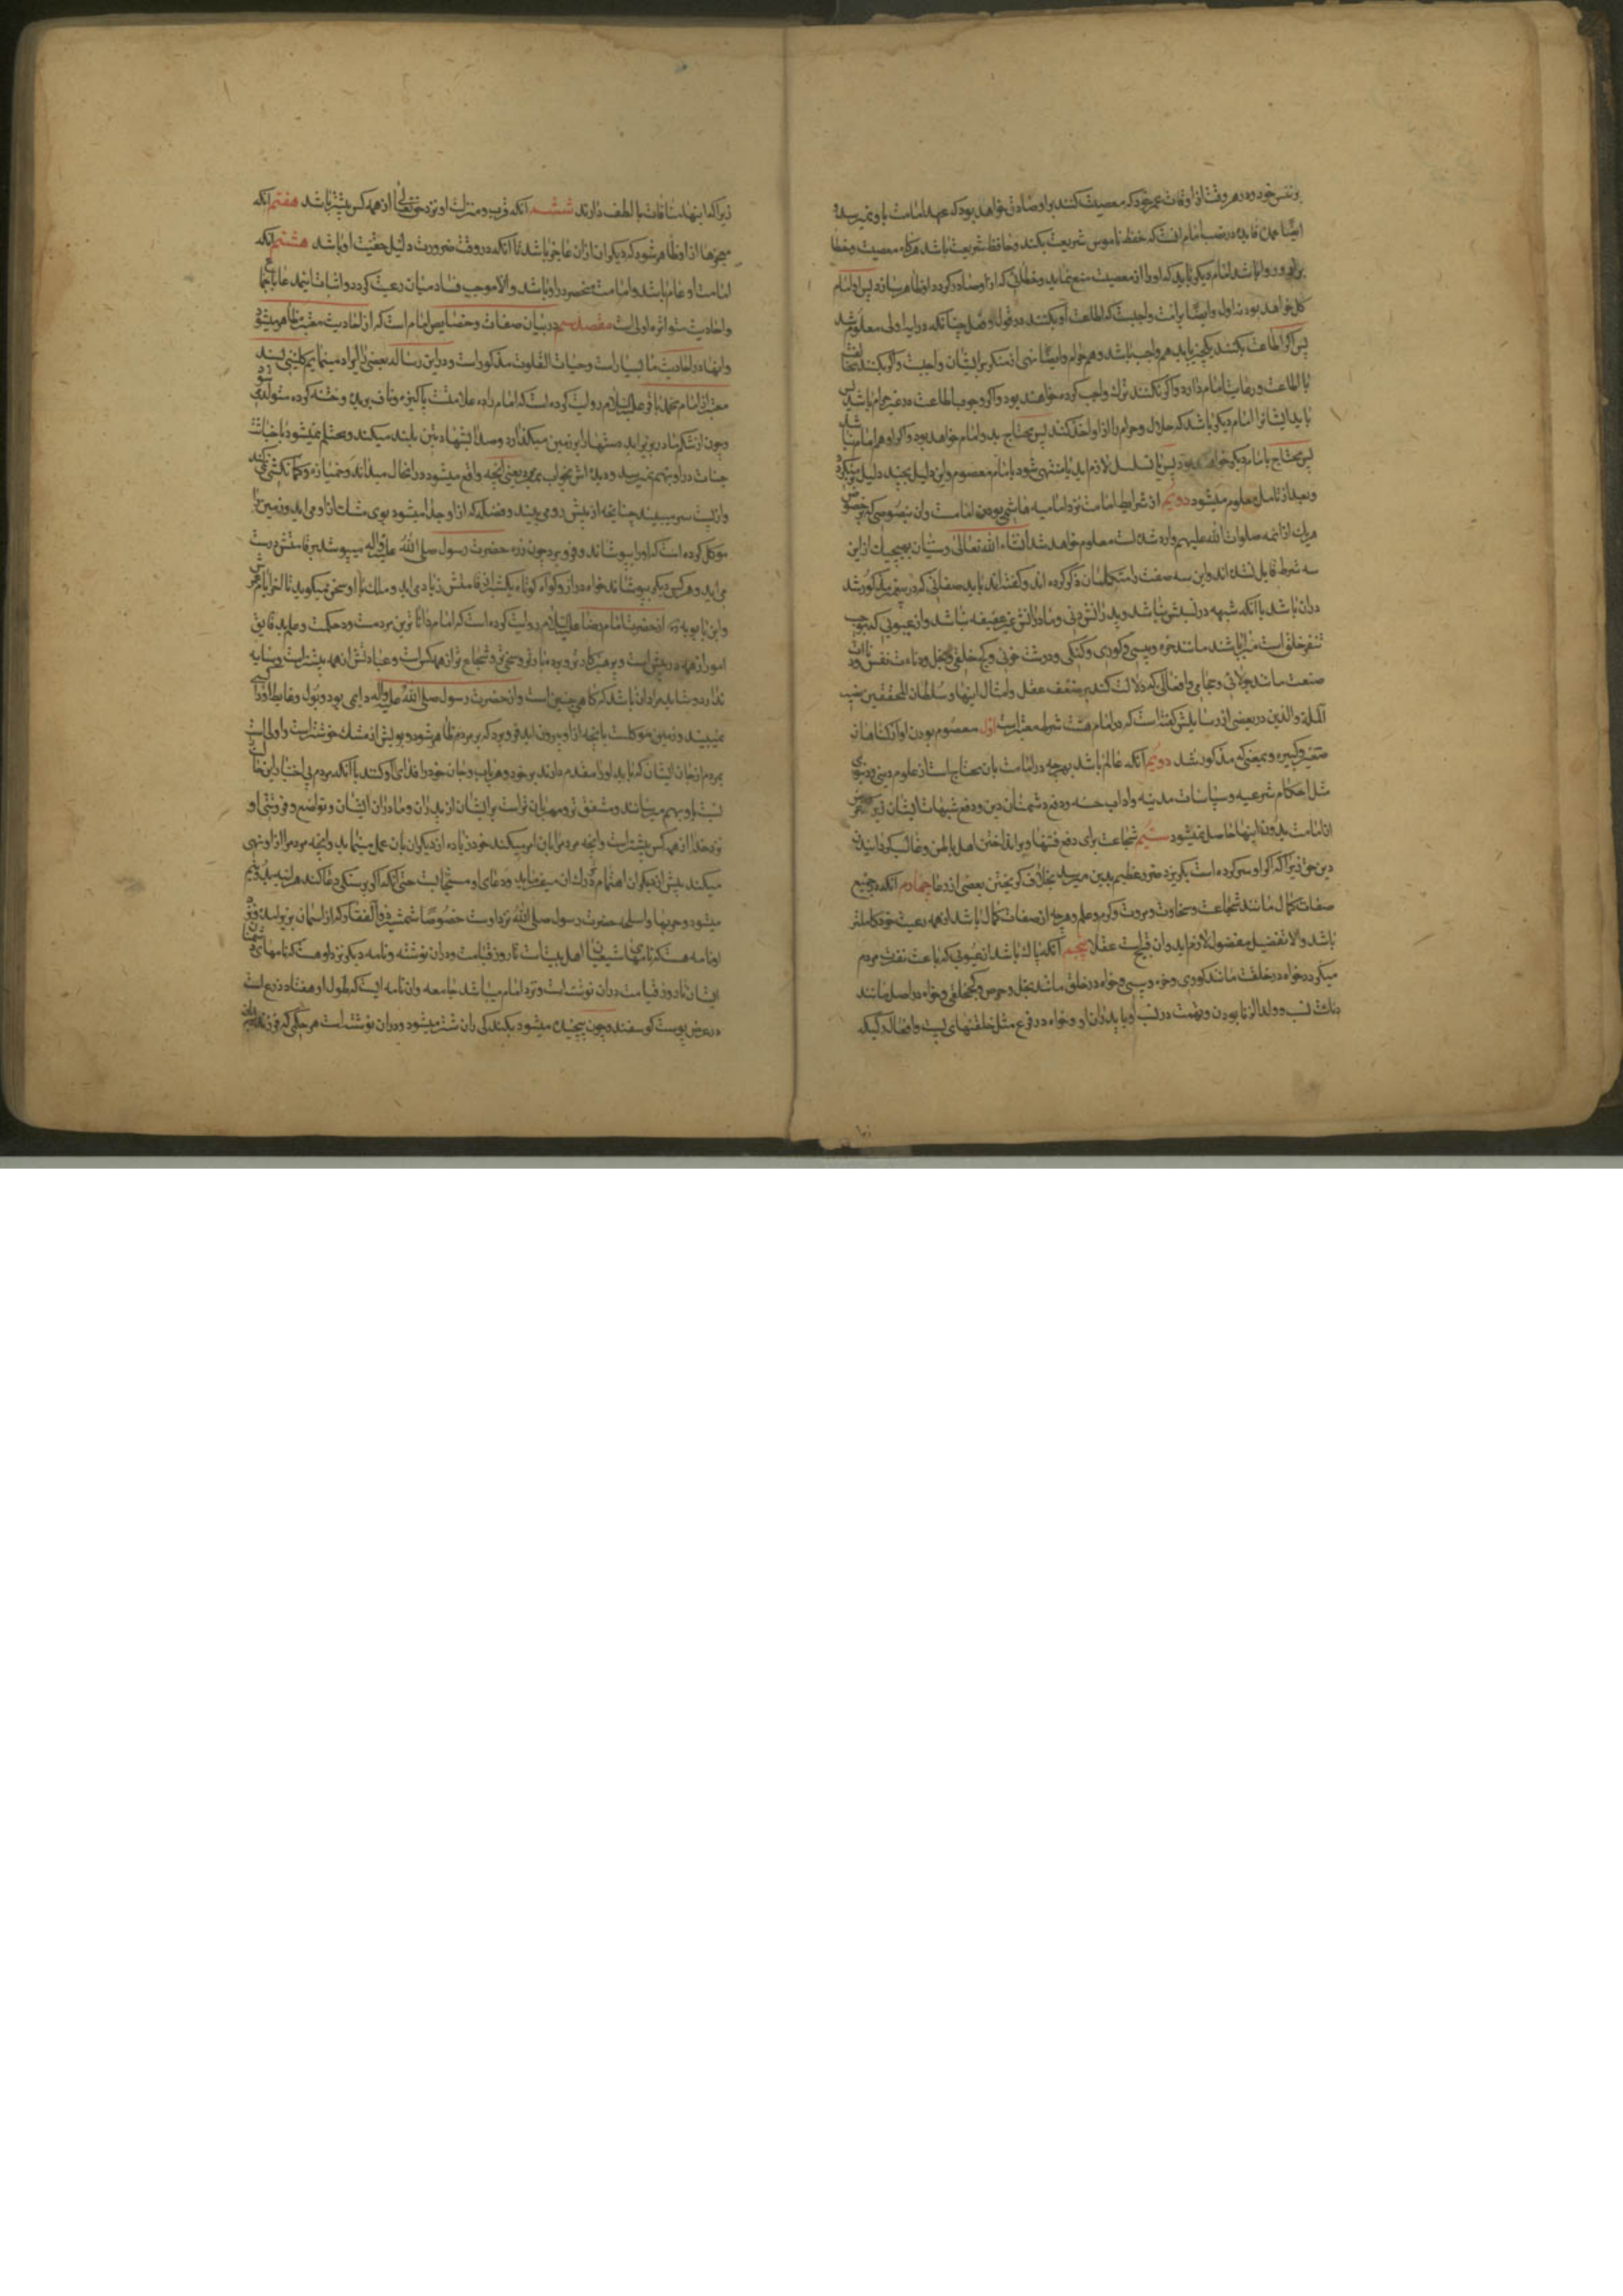 بر نفس خود و در هر وقت از اوقات عمر خود که معصیت کنند بر او صادق خواهد بود که عهد امامت باو نمیرسد و
ایضا فایده در نصب امام انست که حفظ ناموس شریعت بکند و محافظ شریعت باشد هرگاه معصیت و خطا
بر او روا باشد امام دیگر باید که او را از معصیت منع نماید و خطائی که از او صادر گردد اظهار سازد پس او امام
کل خواهد بود نه اول و ایضا بر امت واجبست که اطاعت او بکنند در قول و فعل چنانکه در ایه اولی معلوم شد
پس اگر اطاعت بکنند یکچیز باید هم واجب باشد و هم حرام و ایضا نهی از منکر بر ایشان واجبست و اگر بکنند
با اطاعت و رعایت امام دارد و اگر نکنند ترک واجب کرده خواهند بود و اگر وجوب اطاعت در غیر حرام باشد پس
باید ایشانرا امام دیگر باشد که حلال و حرام را از او اخذ کنند پس محتاج بدو امام خواهد بود و اگر او هم امام
پس محتاج بامام دیگر خواهد بود پس یا تسلسل لازم اید یا منتهی شود بامام معصوم و این دلیل بچند دلیل
و بعد از تامل معلوم میشود دویم از شرایط امامت نزد امامیه هاشمی بودن امامت و ان بنصوصی که بر خصوص
هریک از ائمه صلوات الله علیهم وارد شده است معلوم خواهد شد انشاء الله تعالی و سنیان بهیچیک از این
سه شرط قایل نشده اند و این سه صفت را متکلمان ذکر کرده اند و گفته اند باید صفاتی که در پیغمبر مذکور شد
در ان باشد با انکه شبهه در نسبش نباشد و پدرانش دنی و مادرانش غیر عفیفه نباشند و از عیوبی که موجب
تنفر خلق است مبرا باشد مانند خوره و پیسی و کوری و گنگی و درشت خوئی و کج خلقی و بخل و دنائت نفس و
صنعت مانند جولائی و حجامی و افعالی که دلالت کند بر ضعف عقل و امثال اینها و سلطان المحققین نصیر
الملة والدین در بعضی از رسایلش گفته است که در امام هشت شرط معتبر است اول معصوم بودن او از گناهان
صغیره و کبیره و بمعنی که مذکور شد دویم انکه عالم باشد بهرچه در امامت بان محتاج است از علوم دینی و دنیوی
مثل احکام شرعیه و سیاسات مدنیه و اداب حسنه و دفع دشمنان دین و دفع شبهات ایشان زیرا که غرض
از امامت بدون اینها حاصل نمیشود سیم شجاعت برای دفع فتنها و برانداختن اهل باطل و غالب گردانیدن
دین حق زیرا که اگر او سرکرده است بگریزد ضرر عظیم بدین میرسد بخلاف گریختن بعضی از رعایا چهارم انکه در جمیع
صفات کمال مانند شجاعت و سخاوت و مروت و کرم و علم و هرچه از صفات کمال باشد از همه رعیت خود کاملتر
باشد والا تفضیل مفضول لازم اید و ان قبیح است عقلا پنجم انکه پاک باشد از عیوبی که باعث نفرت مردم
میگردد خواه در خلقت مانند کوری و خوره و پیسی و خواه در خلق مانند بخل و حرص و کجخلقی و خواه در اصل مانند
دنائت نسب و ولد الزنا بودن و تهمت در نسب او یا پدران او و خواه در فروع مثل خلقتهای پست و افعال رکیکه
زیرا که اینها منافات با لطف دارند ششم انکه قرب و منزلت او نزد حق تعالی از همه کس بیشتر باشد هفتم انکه
معجزها از او ظاهر شود که دیگران از ان عاجز باشند تا انکه در وقت ضرورت دلیل حقیت او باشد هشتم انکه
امامت او عام باشد و امامت منحصر در او باشد والا موجب فساد میان رعیت گردد و اثبات اینمدعا
و احادیث متواتره اولی است مقصد سیم در بیان صفات و خصایص امام است که از احادیث معتبره ظاهر میشود
و اینها در احادیث ما بسیار است و حیات القلوب مذکور است و در این رساله بعضی را ایراد مینمایم کلینی بسند
معتبر از امام محمد باقر علیه السلام روایت کرده است که امام زاده علامت پاکیزه و ناف بریده و ختنه کرده متولد
و چون از شکم مادر بزیر اید دستها را بر زمین میگذارد و صدا بشهادتین بلند میکند و محتلم نمیشود و
جنابت در او بهم نمیرسد و دیده اش بخواب میرود یعنی انچه واقع میشود در انحال میداند و خمیازه و کمانکشی
و از پس سر میبیند چنانچه از پیش روی بیند و فضله که از او جدا میشود بوی مشک از او می اید و زمین را
موکل کرده است که او را بپوشاند و فرو برد چون زره حضرت رسول صلی الله علیه و اله میپوشد بر قامتش درست
می اید و هر کس دیگر بپوشاند خواه دراز و خواه کوتاه یکشبر از قامتش زیاد می اید و ملک با او سخن میگوید تا اخر ایام
و ابن بابویه از حضرت امام رضا علیه السلام روایت کرده است که امام داناترین مردمست و در حکمت و علم
امور از همه در پیش است و پرهیزکارتر و بردبارتر و سخی تر و شجاع تر از همه کس است و عبادتش از همه بیشتر است و سایه
ندارد و شاید مراد ان باشد که گاهی چنین است و از حضرت رسول صلی الله علیه و اله دایمی بود و بول و غایط او را
نمیبیند و زمین موکلست بانچه از او بیرون اید فرو برد که بر مردم ظاهر نشود و بویش از مشک خوشتر است و اولی است
بمردم از جان ایشان که باید او را مقدم دارند بر خود و هر باب و جان خود را فدای او کنند با انکه مردم بی اختیار این
نسبت باو بهم میرسانند و مشفق تر و مهربان تر است بر ایشان از پدران و مادران ایشان و تواضع و فروتنی او
نزد خدا از همه کس بیشتر است و انچه مردم را بان امر میکند خود زیاده از دیگران بان عمل مینماید و انچه مردم را از او نهی
میکند بیش از دیگران اهتمام در ترک ان میفرماید و دعای او مستجابست حتی انکه اگر بر سنگی دعا کند هر اینه بدو نیم
میشود و حربها و اسلحه حضرت رسول صلی الله نزد اوست خصوصا شمشیر ذو الفقار که از اسمان بزیر امده و نزد
او نامه هست که نامهای شیعیان اهل بیت است تا روز قیامت در ان نوشته و نامه دیگر نزد او هست که نامهای دشمنان
ایشان تا روز قیامت در ان نوشته است و نزد امام میباشد جامعه و ان نامه ایست که طول او هفتاد ذرع است
در عرض پوست گوسفند و چون پیچیده میشود بگندگی ران شتر میشود و در ان نوشته است هر حکمی که فرزندان